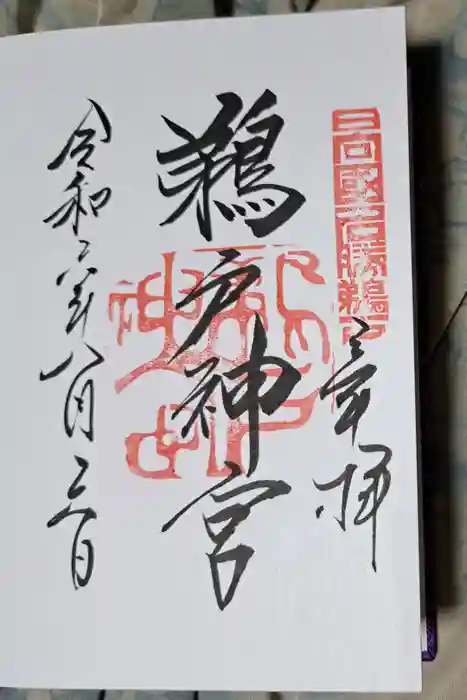 日向國名勝鵜戸
奉拝
鵜戸神宮
令和六年八月三日